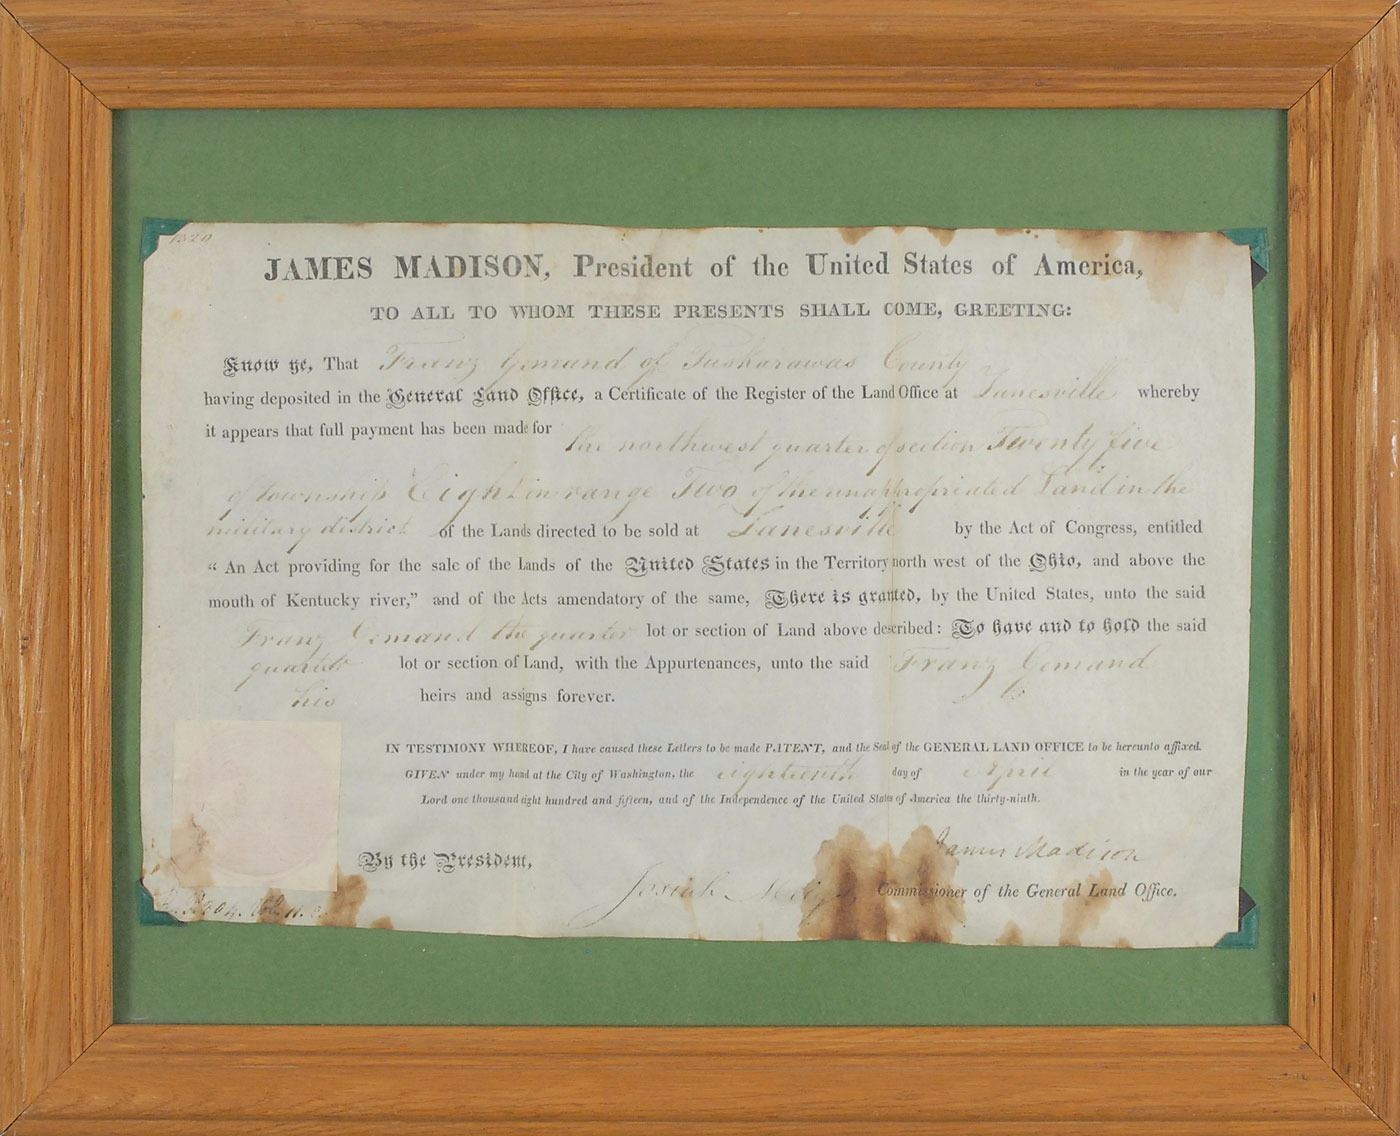 1320
JAMES MADISON, President of the United States of America,
TO ALL TO WHOM THESE PRESENTS SHALL COME, GREETING:
Know ye, That Franz Gemand of Tuskarawas County
having deposited in the General Land Office, a Certificate of the Register of the Land Office at Zanesville whereby
it appears that full payment has been made for the northwest quarter of section Twenty five
of township Eight in range Two of the unappropriated Land in the
military district of the Lands directed to be sold at Zanesville by the Act of Congress, entitled
“ An Act providing for the sale of the Lands of the United States in the Territory north west of the Ohio, and above the
mouth of Kentucky river,” and of the Acts amendatory of the same, There is granted, by the United States, unto the said
Franz Gemand the quarter lot or section of Land above described: To have and to hold the said
quarter lot or section of Land, with the Appurtenances, unto the said Franz Gemand
his heirs and assigns forever.
IN TESTIMONY WHEREOF, I have caused these Letters to be made PATENT, and the Seal of the GENERAL LAND OFFICE to be hereunto affixed.
GIVEN under my hand at the City of Washington, the eighteenth day of April in the year of our
Lord one thousand eight hundred and fifteen, and of the Independence of the United States of America the thirty-ninth.
James Madison
By the President,
Josiah Meigs Commissioner of the General Land Office.